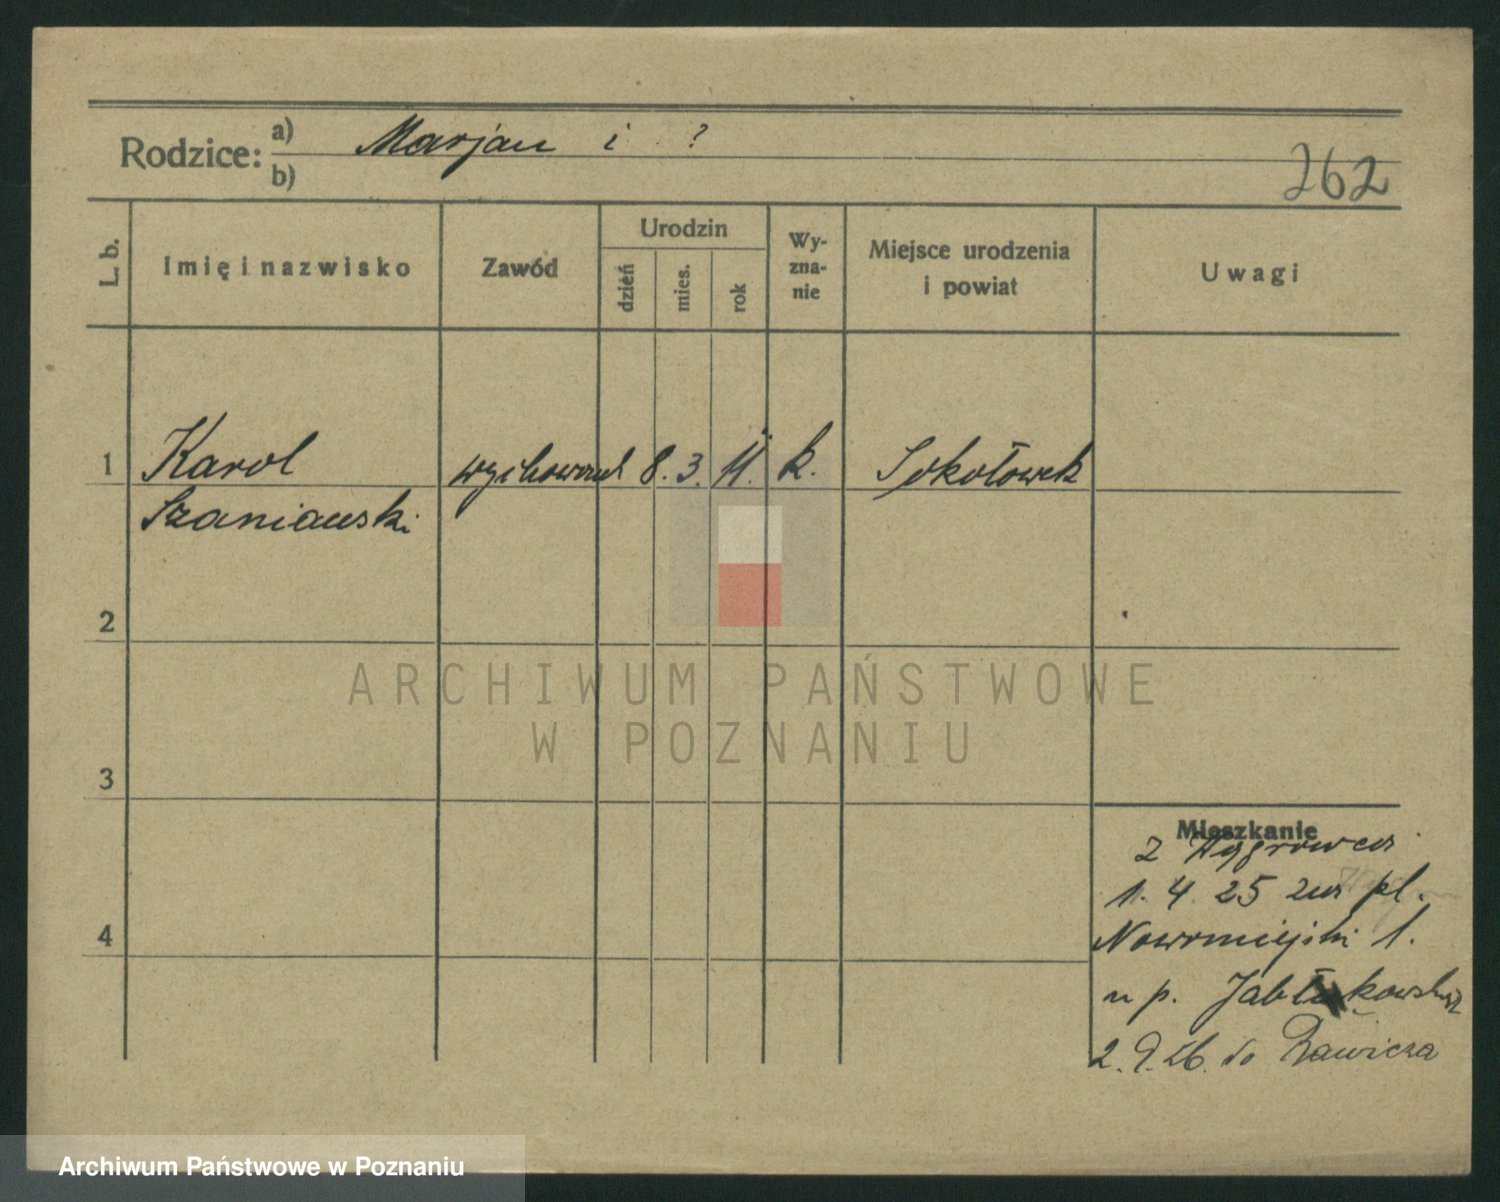 Rodzice: a) Marjan i ?
b)
262
L. b.
Imię i nazwisko
Zawód
Urodzin
dzień
mies.
rok
Wy-
zna-
nie
Miejsce urodzenia
i powiat
Uwagi
1
Karol
Szaniawski
8. 3. 11. k.
Sokołówek
2
3
4
ARCHIWUM PAŃSTWOWE
W POZNANIU
Mieszkanie
z Wągrowca
1. 4 25 na pl.
Nowomiejski 1.
u p.
2. 9. 26. do Rawicza
Archiwum Państwowe w Poznaniu